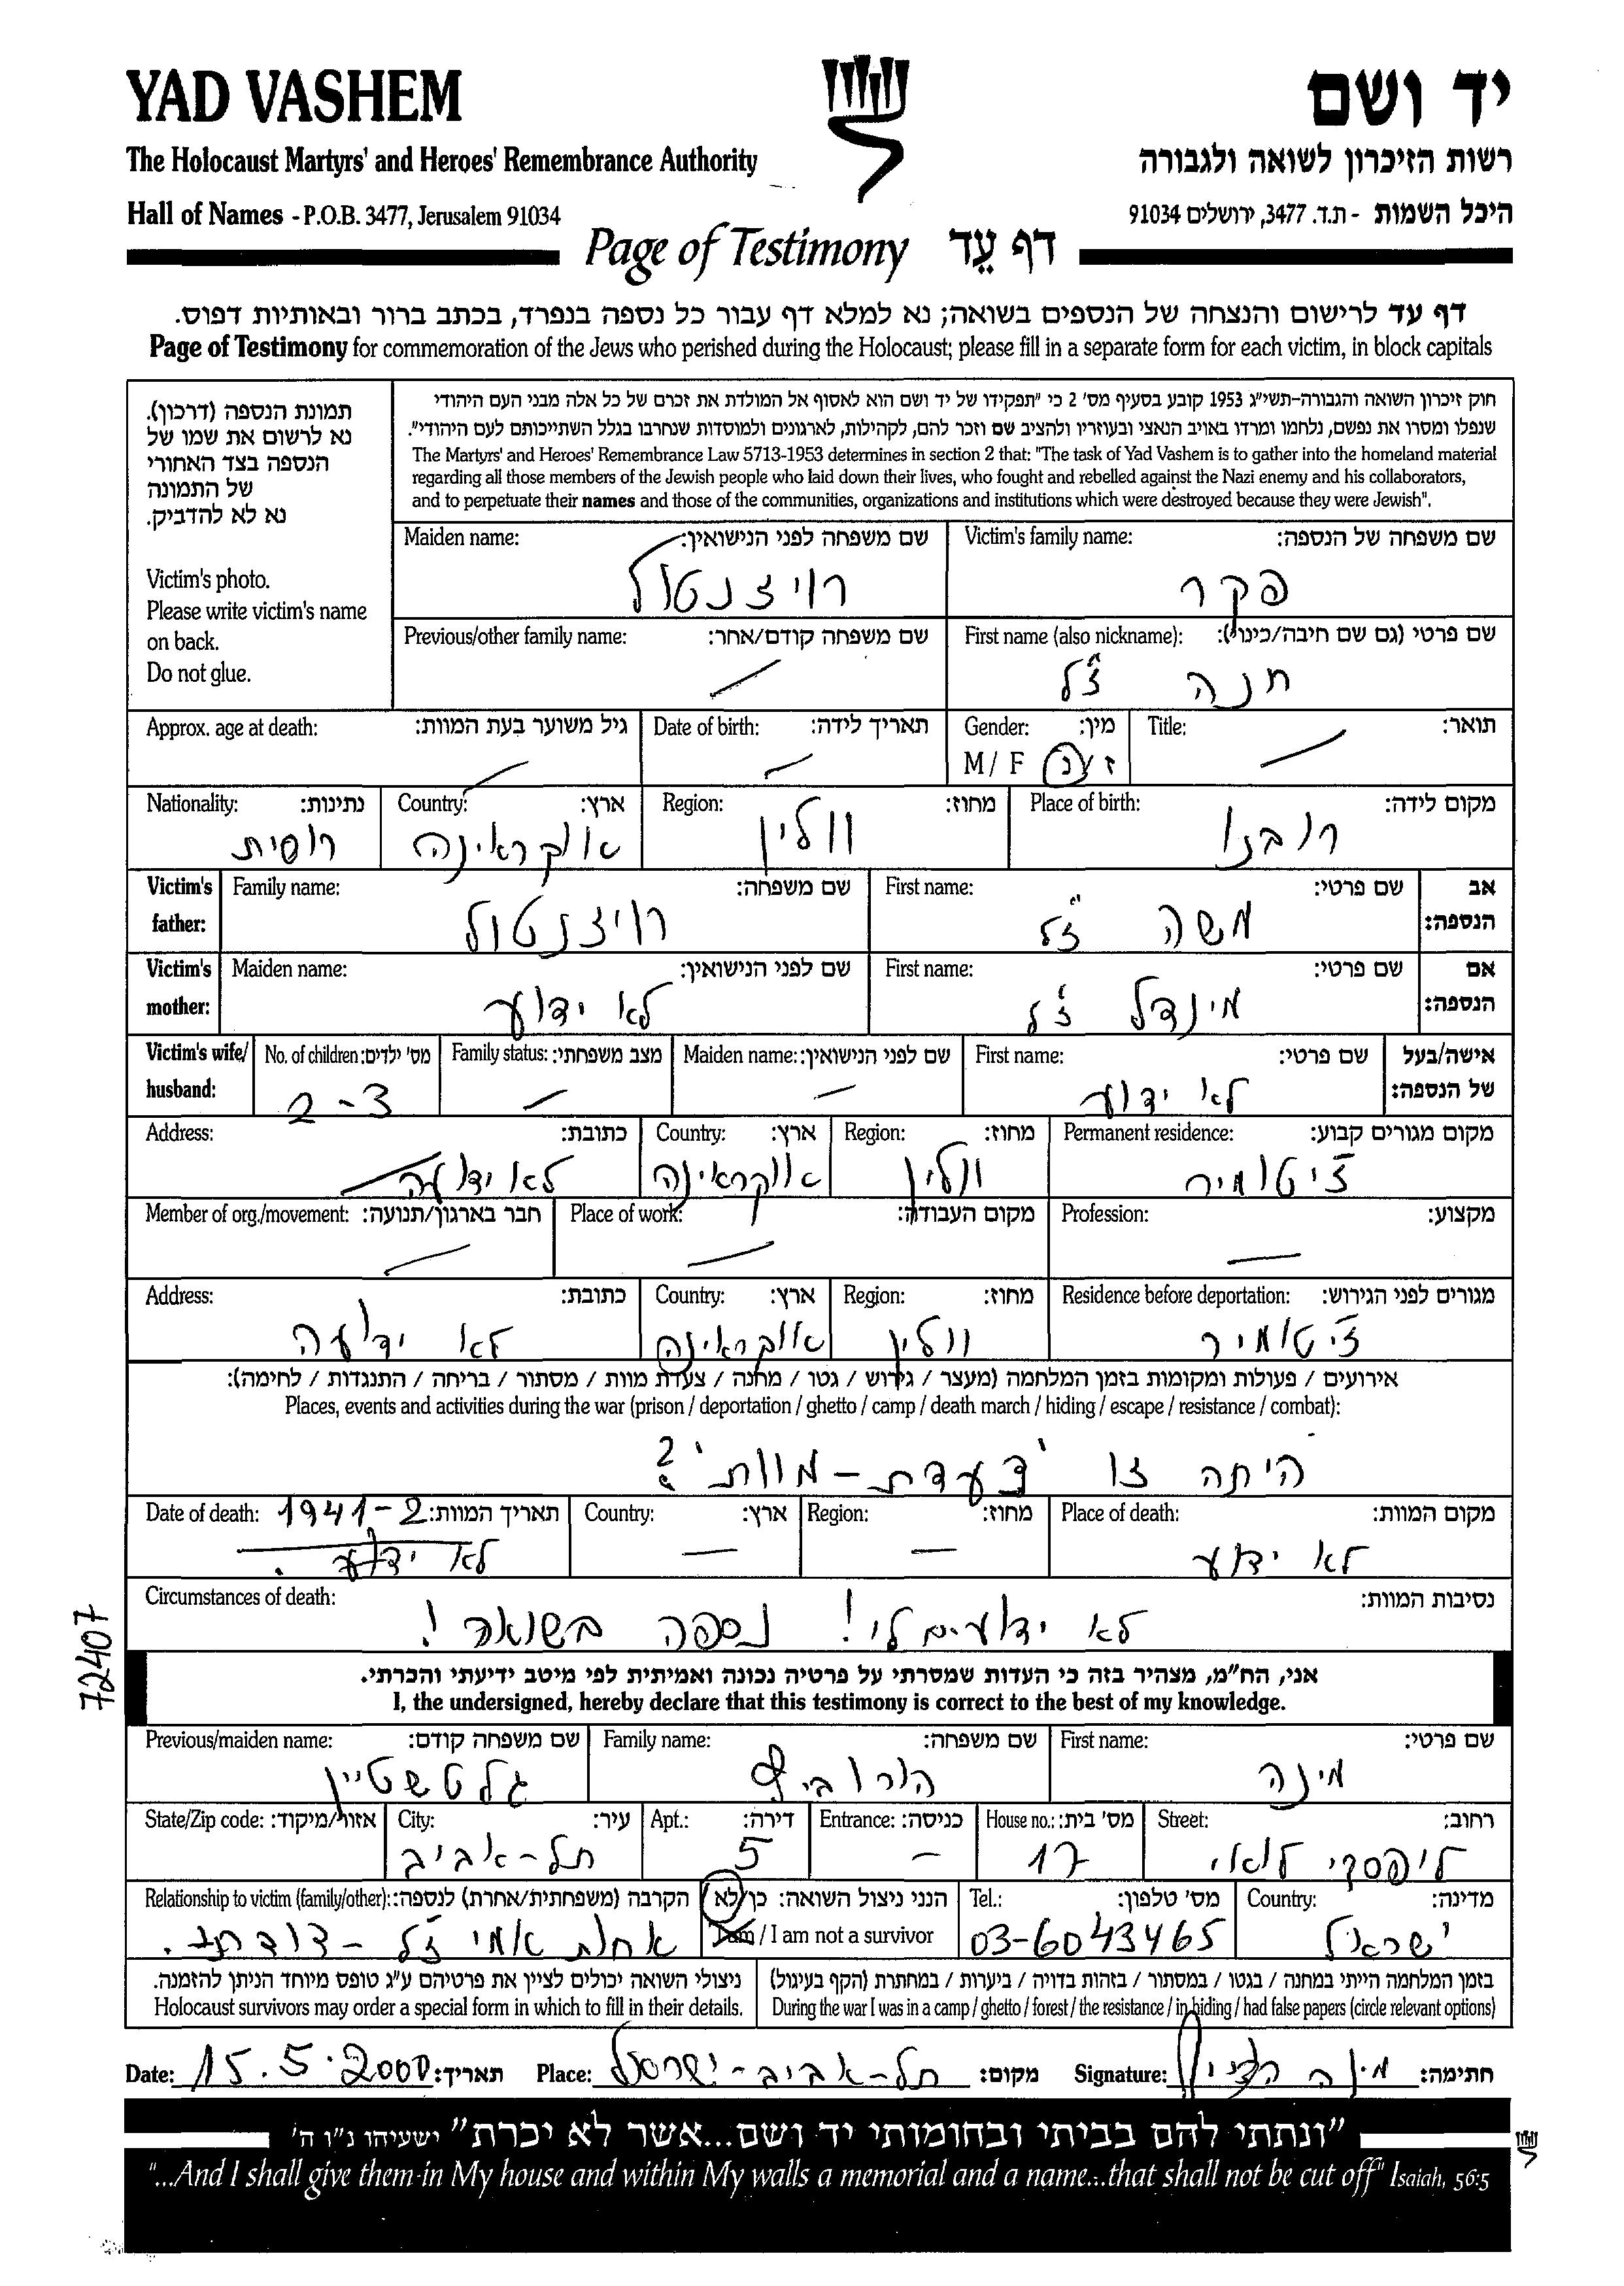 YAD VASHEM
יד ושם
The Holocaust Martyrs' and Heroes' Remembrance Authority
רשות הזיכרון לשואה ולגבורה
Hall of Names - P.O.B. 3477, Jerusalem 91034
היכל השמות - ת.ד. 3477, ירושלים 91034
Page of Testimony דף עֵד
דף עד לרישום והנצחה של הנספים בשואה; נא למלא דף עבור כל נספה בנפרד, בכתב ברור ובאותיות דפוס.
Page of Testimony for commemoration of the Jews who perished during the Holocaust; please fill in a separate form for each victim, in block capitals
תמונת הנספה (דרכון).
נא לרשום את שמו של
הנספה בצד האחורי
של התמונה
נא לא להדביק.
Victim's photo.
Please write victim's name
on back.
Do not glue.
חוק זיכרון השואה והגבורה-תשי"ג 1953 קובע בסעיף מס' 2 כי "תפקידו של יד ושם הוא לאסוף אל המולדת את זכרם של כל אלה מבני העם היהודי
שנפלו ומסרו את נפשם, נלחמו ומרדו באויב הנאצי ובעוזריו ולהציב שם וזכר להם, לקהילות, לארגונים ולמוסדות שנחרבו בגלל השתייכותם לעם היהודי".
The Martyrs' and Heroes' Remembrance Law 5713-1953 determines in section 2 that: "The task of Yad Vashem is to gather into the homeland material
regarding all those members of the Jewish people who laid down their lives, who fought and rebelled against the Nazi enemy and his collaborators,
and to perpetuate their names and those of the communities, organizations and institutions which were destroyed because they were Jewish".
Victim's family name: שם משפחה של הנספה:
פקר
Maiden name: שם משפחה לפני הנישואין:
רויזנטול
First name (also nickname): שם פרטי (גם שם חיבה/כינוי):
חנה ז"ל
Previous/other family name: שם משפחה קודם/אחר:
Title: תואר:
Gender: מין:
M / F ז / נ
Date of birth: תאריך לידה:
Approx. age at death: גיל משוער בעת המוות:
Place of birth: מקום לידה:
רובנו
Region: מחוז:
וולין
Country: ארץ:
אוקראינה
Nationality: נתינות:
רוסית
Victim's father: אב הנספה:
First name: שם פרטי:
משה ז"ל
Family name: שם משפחה:
רויזנטול
Victim's mother: אם הנספה:
First name: שם פרטי:
מינדל ז"ל
Maiden name: שם לפני הנישואין:
לא ידוע
Victim's wife/ husband: אישה/בעל של הנספה:
First name: שם פרטי:
לא ידוע
Maiden name: שם לפני הנישואין:
Family status: מצב משפחתי:
No. of children: מס' ילדים:
2-3
Permanent residence: מקום מגורים קבוע:
ז'יטומיר
Region: מחוז:
וולין
Country: ארץ:
אוקראינה
Address: כתובת:
לא ידועה
Profession: מקצוע:
Place of work: מקום העבודה:
Member of org./movement: חבר בארגון/תנועה:
Residence before deportation: מגורים לפני הגירוש:
ז'יטומיר
Region: מחוז:
וולין
Country: ארץ:
אוקראינה
Address: כתובת:
לא ידועה
אירועים / פעולות ומקומות בזמן המלחמה (מעצר / גירוש / גטו / מחנה / צעדת מוות / מסתור / בריחה / התנגדות / לחימה):
Places, events and activities during the war (prison / deportation / ghetto / camp / death march / hiding / escape / resistance / combat):
היתה זו 'צעדת-מוות'?
Place of death: מקום המוות:
לא ידוע
Region: מחוז:
Country: ארץ:
Date of death: תאריך המוות: 1941-2
לא ידוע.
Circumstances of death: נסיבות המוות:
לא ידועים לי! נספה בשואה!
72407
אני, הח"מ, מצהיר בזה כי העדות שמסרתי על פרטיה נכונה ואמיתית לפי מיטב ידיעתי והכרתי.
I, the undersigned, hereby declare that this testimony is correct to the best of my knowledge.
First name: שם פרטי:
מינה
Family name: שם משפחה:
הורוביץ
Previous/maiden name: שם משפחה קודם:
גלטשטיין
Street: רחוב:
ליפסקי לואי
House no.: מס' בית:
17
Entrance: כניסה:
Apt.: דירה:
5
City: עיר:
תל-אביב
State/Zip code: אזור/מיקוד:
Country: מדינה:
ישראל
Tel.: מס' טלפון:
03-6043465
הנני ניצול השואה: כן/לא
I am / I am not a survivor
Relationship to victim (family/other): הקרבה (משפחתית/אחרת) לנספה:
אחות אמי ז"ל - דודתי.
בזמן המלחמה הייתי במחנה / בגטו / במסתור / בזהות בדויה / ביערות / במחתרת (הקף בעיגול)
During the war I was in a camp / ghetto / forest / the resistance / in hiding / had false papers (circle relevant options)
ניצולי השואה יכולים לציין את פרטיהם ע"ג טופס מיוחד הניתן להזמנה.
Holocaust survivors may order a special form in which to fill in their details.
Date: 15.5.2000 תאריך: Place: תל-אביב-ישראל מקום: Signature: מינה חתימה:
"ונתתי להם בביתי ובחומותי יד ושם...אשר לא יכרת" ישעיהו נ"ו ה'
"...And I shall give them in My house and within My walls a memorial and a name...that shall not be cut off" Isaiah, 56:5